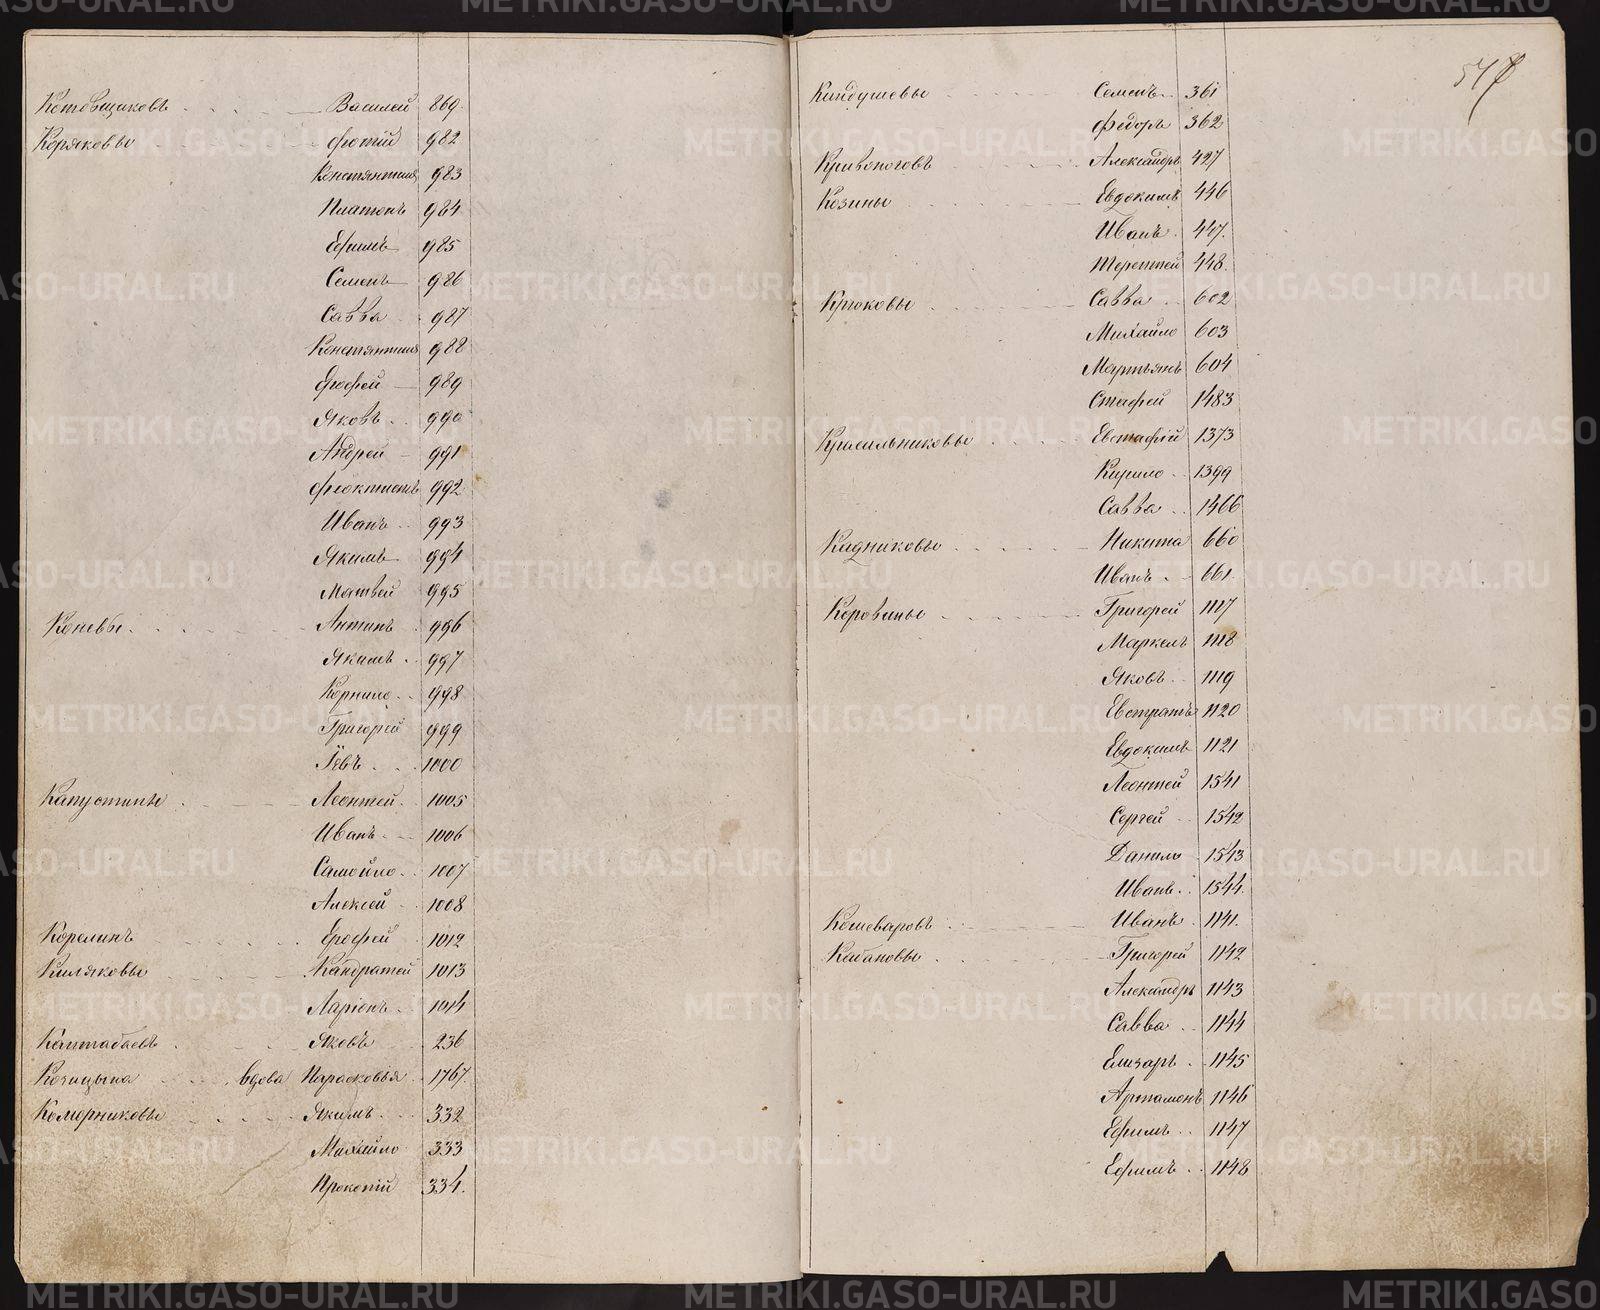 Котовщиковъ Василей 869.
Коряковы Фотій 982
Констянтинъ 983
Платонъ 984
Ефимъ 985
Семенъ 986
Савва 987
Констянтинъ 988
Ерофей 989
Яковъ 990
Андрей 991
Феоктистъ 992
Иванъ 993
Якимъ 994
Матвей 995
Коневы Антипъ 996
Якимъ 997
Корнило 998
Григорей 999
Іевъ 1000
Капустины Леонтей 1005
Иванъ 1006
Самойло 1007
Алексей 1008
Корелинъ Ерофей 1012
Киляковы Кандратей 1013
Ларіонъ 1014
Яковъ 236
Козицына вдова Парасковья 1767.
Якимъ 332
Михайло 333
Прокопій 334.
547
Киндушевы Семенъ 361
Федоръ 362
Кривоноговъ Александръ 427
Козины Евдокимъ 446
Иванъ 447.
Терентей 448.
Крюковы Савва 602
Михайло 603
Мартьянъ 604
Стафей 1483
Красильниковы Евстафій 1373
Кирило 1399
Савва 1466
Кадниковы Никита 660
Иванъ 661.
Коровины Григорей 1117
Маркелъ 1118
Яковъ 1119
Евстратъ 1120
Евдокимъ 1121
Леонтей 1541
Сергей 1542
Данило 1543
Иванъ 1544.
Кошеваровъ Иванъ 1141.
Кабановы Григорей 1142
Александръ 1143
Савва 1144
Елизаръ 1145
Артамонъ 1146
Ефимъ 1147
Ефимъ 1148
METRIKI.GASO-URAL.RU